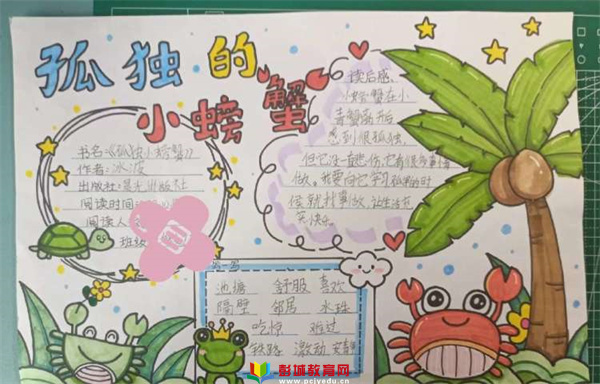 孤独的
小螃蟹
书名:《孤独小螃蟹》
作者:冰波
出版社:晨光出版社
阅读时间:
阅读人:
班级
读后感:
小螃蟹在小
青蟹离开后
感到很孤独,
但它没一直悲伤,它有很多事情
做。我要向它学习孤单的时
候就找事做,让生活充
笑快乐。
池塘 舒服 喜欢
隔壁 邻居 水珠
吃惊 难过
铁路 激动 安静
彭城教育网
www.pcjyedu.cn